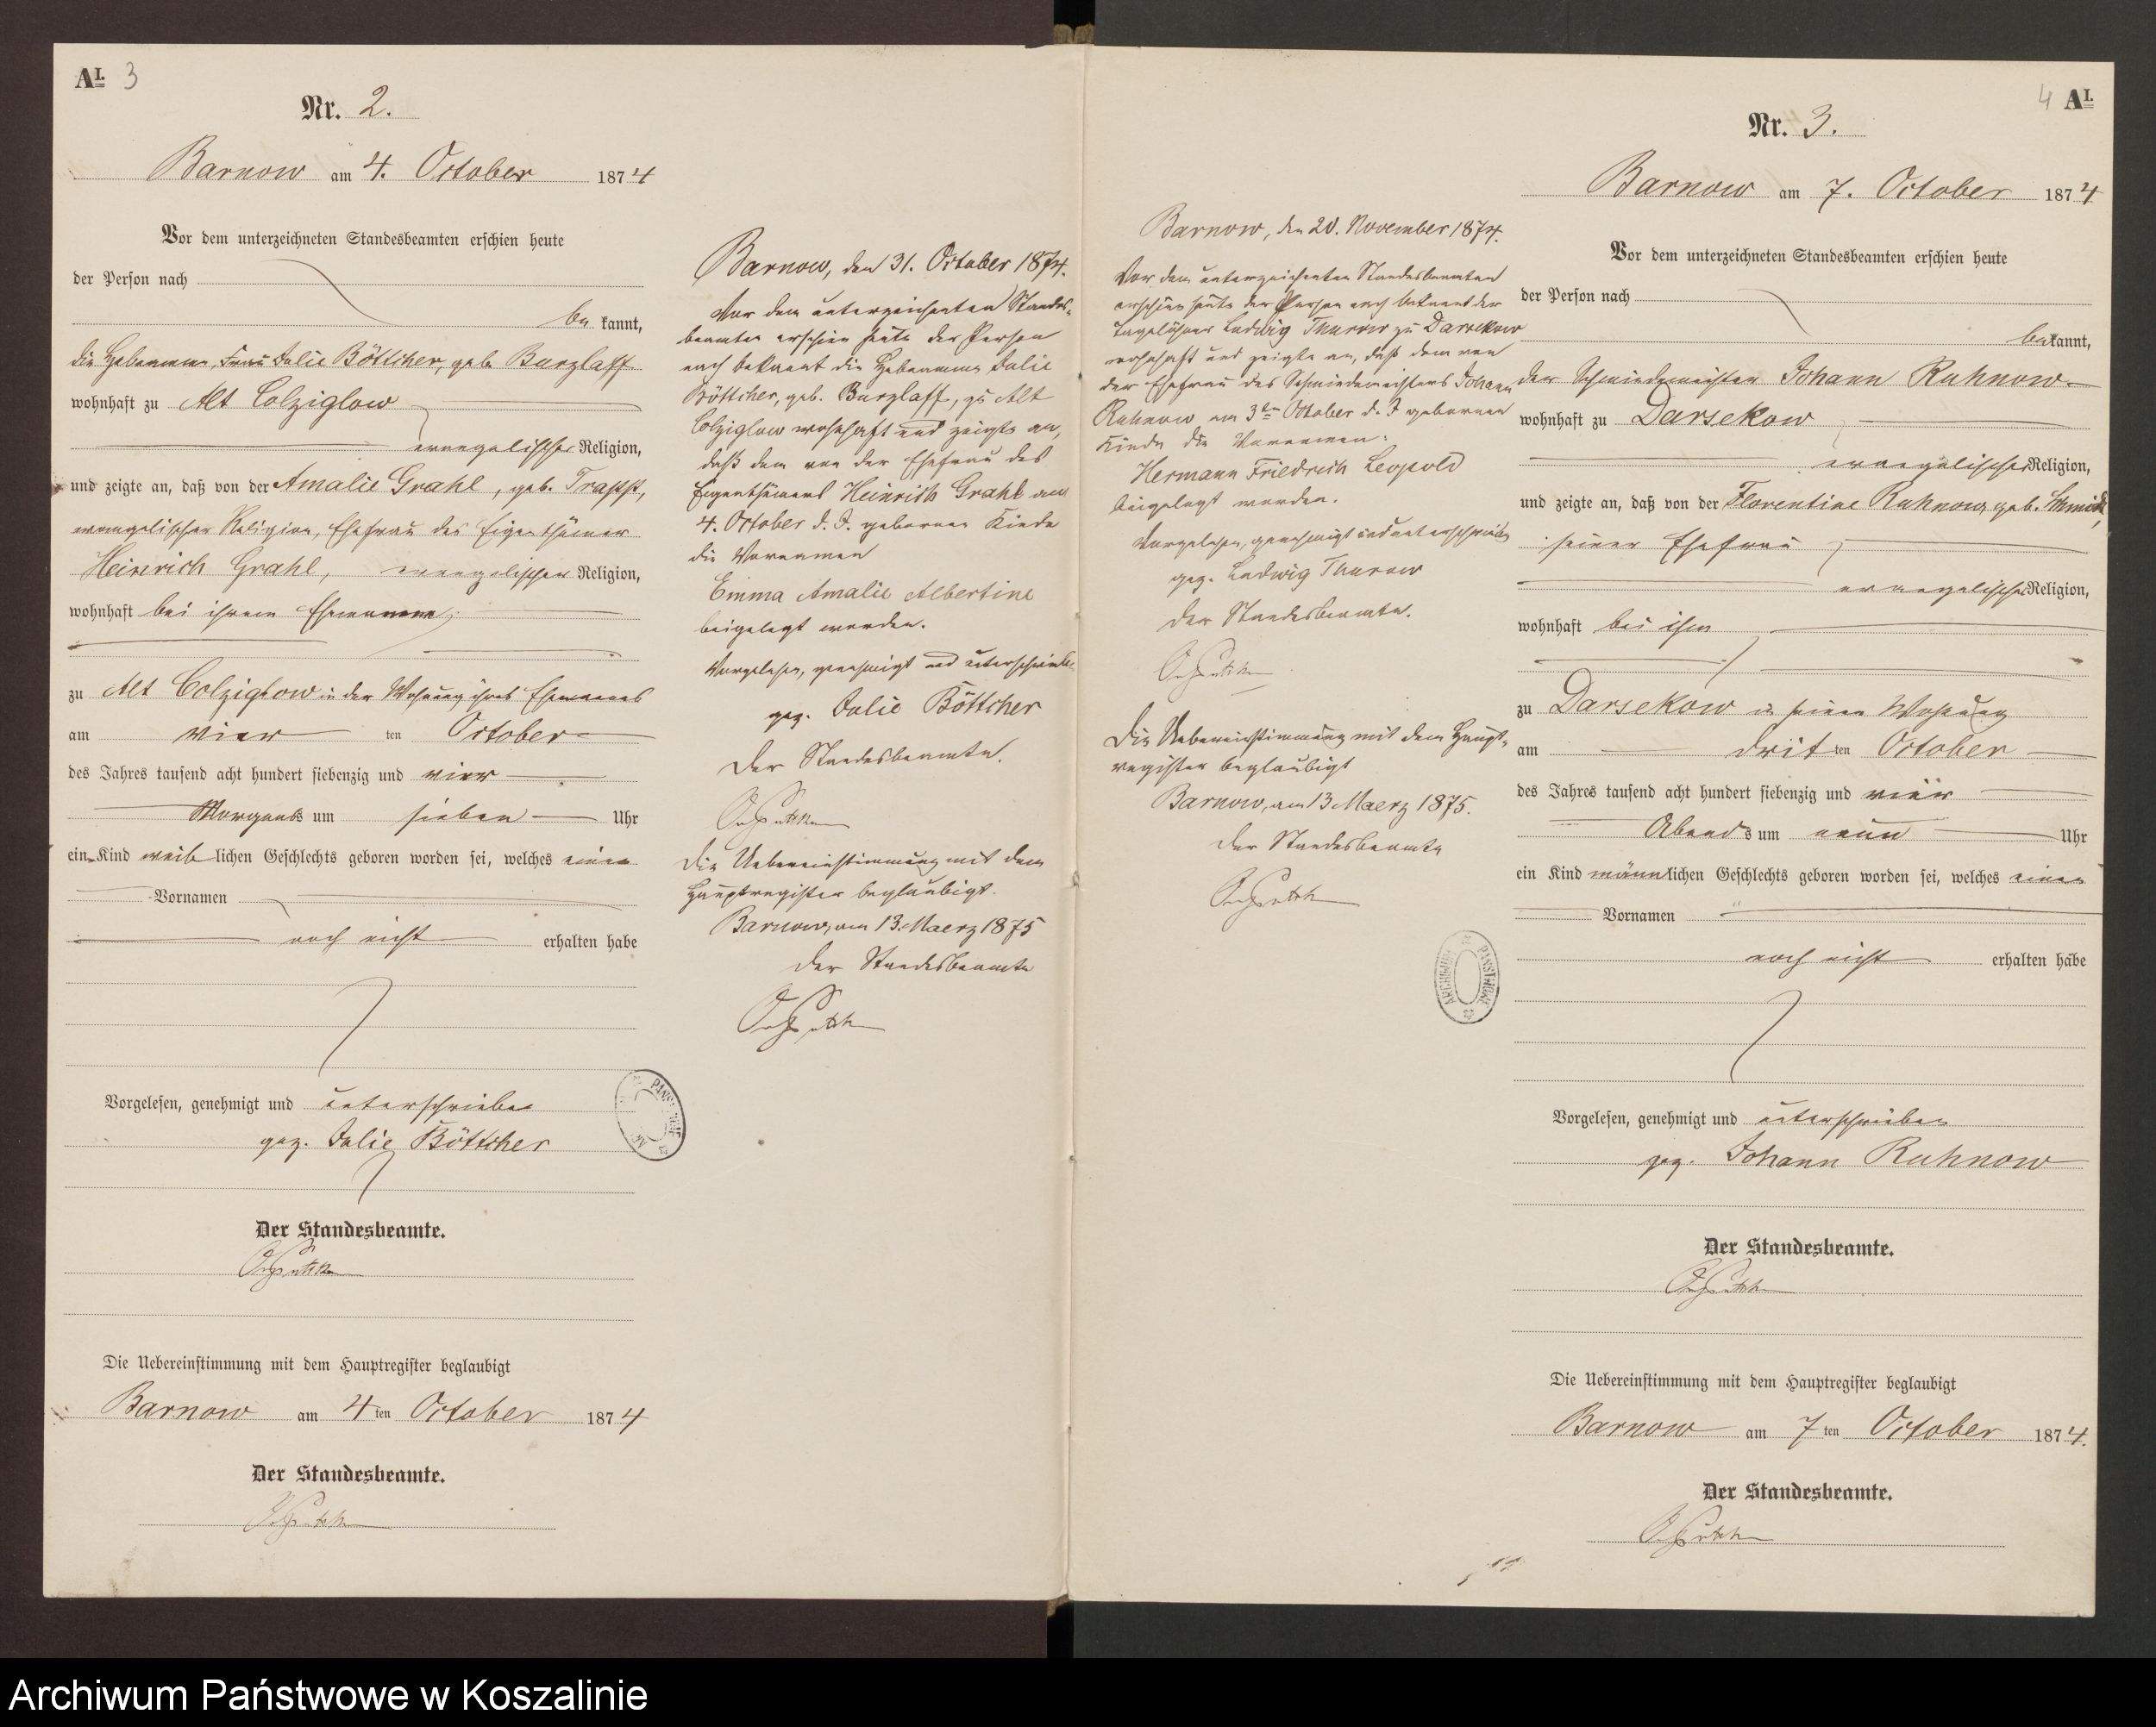 AI. 3
Nr. 2.
Barnow am 4. October 1874
Vor dem unterzeichneten Standesbeamten erschien heute
der Person nach
be kannt,
die Hebamme, Frau Julie Böttcher, geb. Burzlaff
wohnhaft zu Alt Colziglow
evangelischer Religion,
und zeigte an, daß von der Amalie Grahl, geb. Trapp,
evangelischer Religion, Ehefrau des Eigenthümer
Heinrich Grahl, evangelischer Religion,
wohnhaft bei ihrem Ehemanne
zu Alt Colziglow in der Wohnung ihres Ehemannes
am vier ten October
des Jahres tausend acht hundert siebenzig und vier
Morgens um sieben Uhr
ein Kind weiblichen Geschlechts geboren worden sei, welches einen
Vornamen
noch nicht erhalten habe
Vorgelesen, genehmigt und unterschrieben
gez. Julie Böttcher
Der Standesbeamte.
Die Uebereinstimmung mit dem Hauptregister beglaubigt
Barnow am 4ten October 1874
Der Standesbeamte.
Barnow, den 31. October 1874.
Vor dem unterzeichneten Standes-
beamten erschien heute der Person
nach bekannt die Hebamme Julie
Böttcher, geb. Burzlaff, zu Alt
Colziglow wohnhaft und zeigte an,
daß dem von der Ehefrau des
Eigenthümers Heinrich Grahl am
4. October d. J. geborenen Kinde
die Vornamen
Emma Amalie Albertine
beigelegt worden.
Vorgelesen, genehmigt und unterschrieben
gez. Julie Böttcher
Der Standesbeamte.
Die Uebereinstimmung mit dem
Hauptregister beglaubigt.
Barnow, am 13. Maerz 1875
Der Standesbeamte
Barnow, den 20. November 1874.
Vor dem unterzeichneten Standesbeamten
erschien heute der Person nach bekannt der
Tagelöhner Ludwig Thurow zu Darsekow
wohnhaft und zeigte an, daß dem von
der Ehefrau des Schmiedemeisters Johann
Ruhnow am 3ten October d. J geborenen
Kinde die Vornamen:
Hermann Friedrich Leopold
beigelegt worden.
Vorgelesen, genehmigt und unterschrieben
gez. Ludwig Thurow
Der Standesbeamte.
Die Uebereinstimmung mit dem Haupt-
register beglaubigt
Barnow, am 13 Maerz 1875.
Der Standesbeamte
ARCHIWUM PAŃSTWOWE
4 AI.
Nr. 3.
Barnow am 7. October 1874
Vor dem unterzeichneten Standesbeamten erschien heute
der Person nach
bekannt,
der Schmiedemeister Johann Ruhnow
wohnhaft zu Darsekow
evangelischer Religion,
und zeigte an, daß von der Florentine Ruhnow, geb. Schmidt,
seiner Ehefrau
evangelischer Religion,
wohnhaft bei ihm
zu Darsekow in seiner Wohnung
am dritten October
des Jahres tausend acht hundert siebenzig und vier
Abends um neun Uhr
ein Kind männlichen Geschlechts geboren worden sei, welches einen
Vornamen
noch nicht erhalten habe
Vorgelesen, genehmigt und unterschrieben
gez. Johann Ruhnow
Der Standesbeamte.
Die Uebereinstimmung mit dem Hauptregister beglaubigt
Barnow am 7ten October 1874.
Der Standesbeamte.
Archiwum Państwowe w Koszalinie